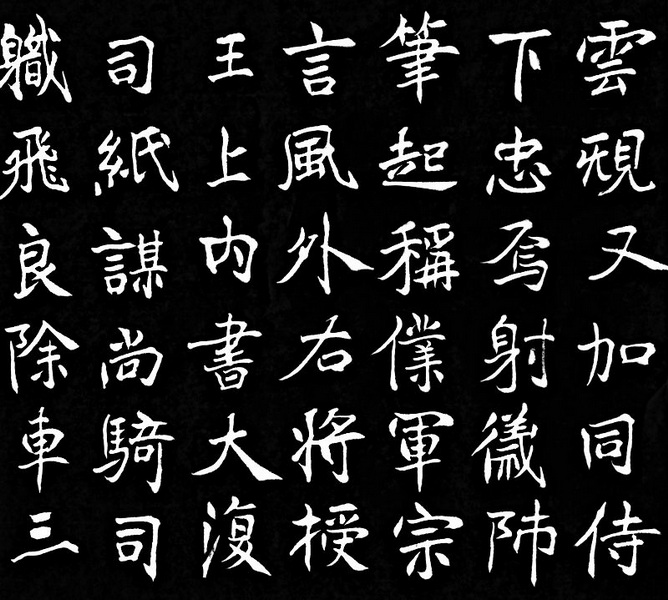 雲又加同侍
下忠焉射
筆起稱僕軍宗
言風外右將授
王上内書大
司紙謀尚騎司
職飛良除車三